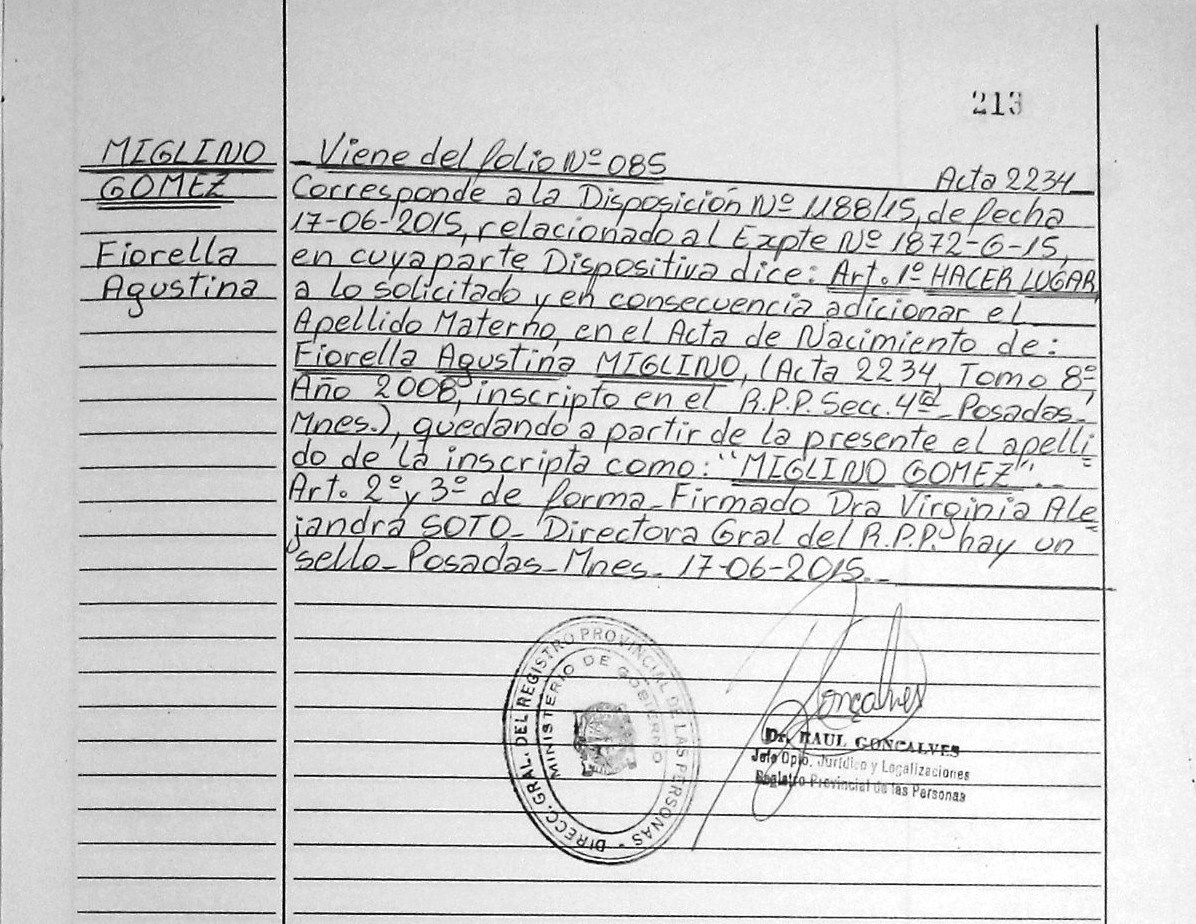 213
MIGLINO
GOMEZ
Fiorella
Agustina
Viene del folio Nº 085
Acta 2234
Corresponde a la Disposición Nº 1188/15, de fecha
17-06-2015, relacionado al Expte Nº 1872-G-15,
en cuya parte Dispositiva dice: Art. 1º HACER LUGAR
a lo solicitado y en consecuencia adicionar el
Apellido Materno, en el Acta de Nacimiento de:
Fiorella Agustina MIGLINO, (Acta 2234, Tomo 8º
Año 2008, inscripto en el R.P.P. Secc. 4ª_ Posadas_
Mnes.), quedando a partir de la presente el apelli
do de la inscripta como: "MIGLINO GOMEZ"._
Art. 2º y 3º de forma_ Firmado Dra Virginia Ale
jandra SOTO_ Directora Gral del R.P.P. hay un
sello_ Posadas_ Mnes_ 17-06-2015._
DIRECC. GRAL. DEL REGISTRO PROVINCIAL DE LAS PERSONAS -
MINISTERIO DE GOBIERNO
Goncalves
Dr. RAUL GONCALVES
Jefe Dpto. Jurídico y Legalizaciones
Registro Provincial de las Personas